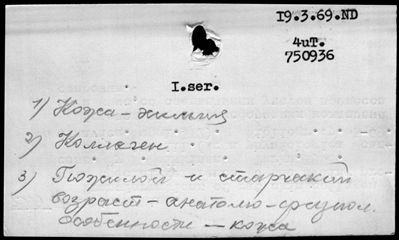 19.3.69.ND
4uT.
750936
I.ser.
1) Кожа - химия
2) Коллаген
3) Пожилой и старческий
возраст - анатомо-физиол.
особенности - кожа